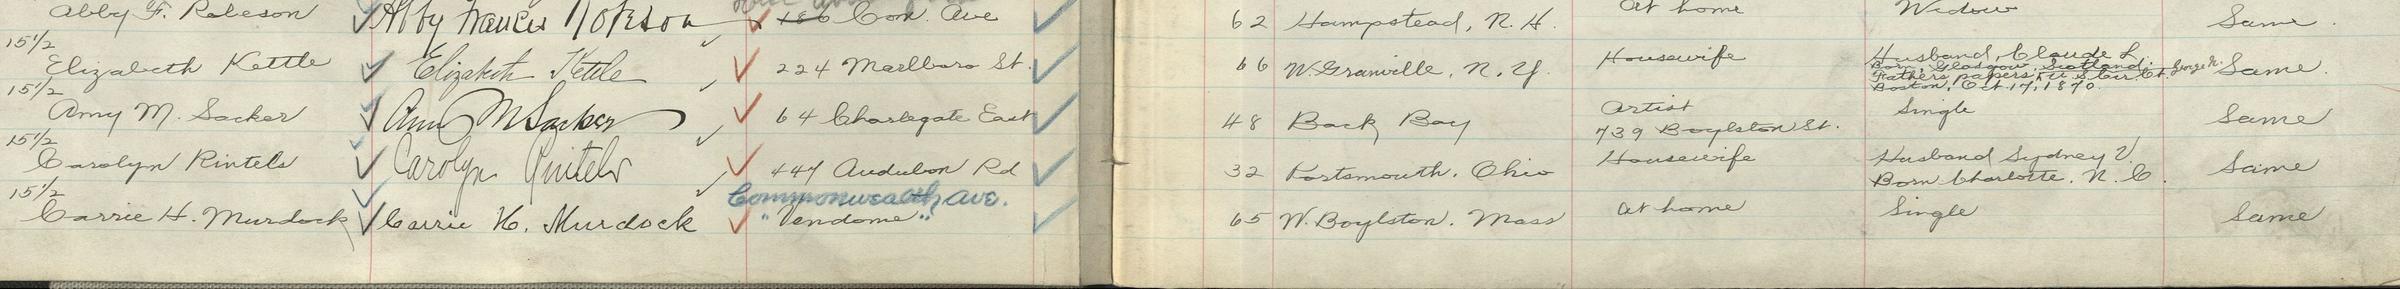 Abby F. Robeson Abby Frances Robeson 186 Com. Ave 62 Hampstead, N. H. At home Widow Same.
15 1/2
Elizabeth Kettle Elizabeth Kettle 224 Marlboro St. 66 W. Granville, N. Y. Housewife Husband, Claude L. Same.
Born, Glasgow, Scotland.
Fathers papers, U. S. Cir. Ct. George N.
Boston, Oct. 17, 1870.
15 1/2
Amy M. Sacker Amy M Sacker 64 Charlegate East 48 Back Bay Artist Single Same
739 Boylston St.
15 1/2
Carolyn Rintels Carolyn Rintels 447 Audubon Rd 32 Portsmouth, Ohio Housewife Husband Sydney V. Same
Born Charlotte, N. C.
15 1/2
Commonwealth Ave.
Carrie H. Murdock Carrie H. Murdock "Vendome" 65 W. Boylston, Mass At home Single Same